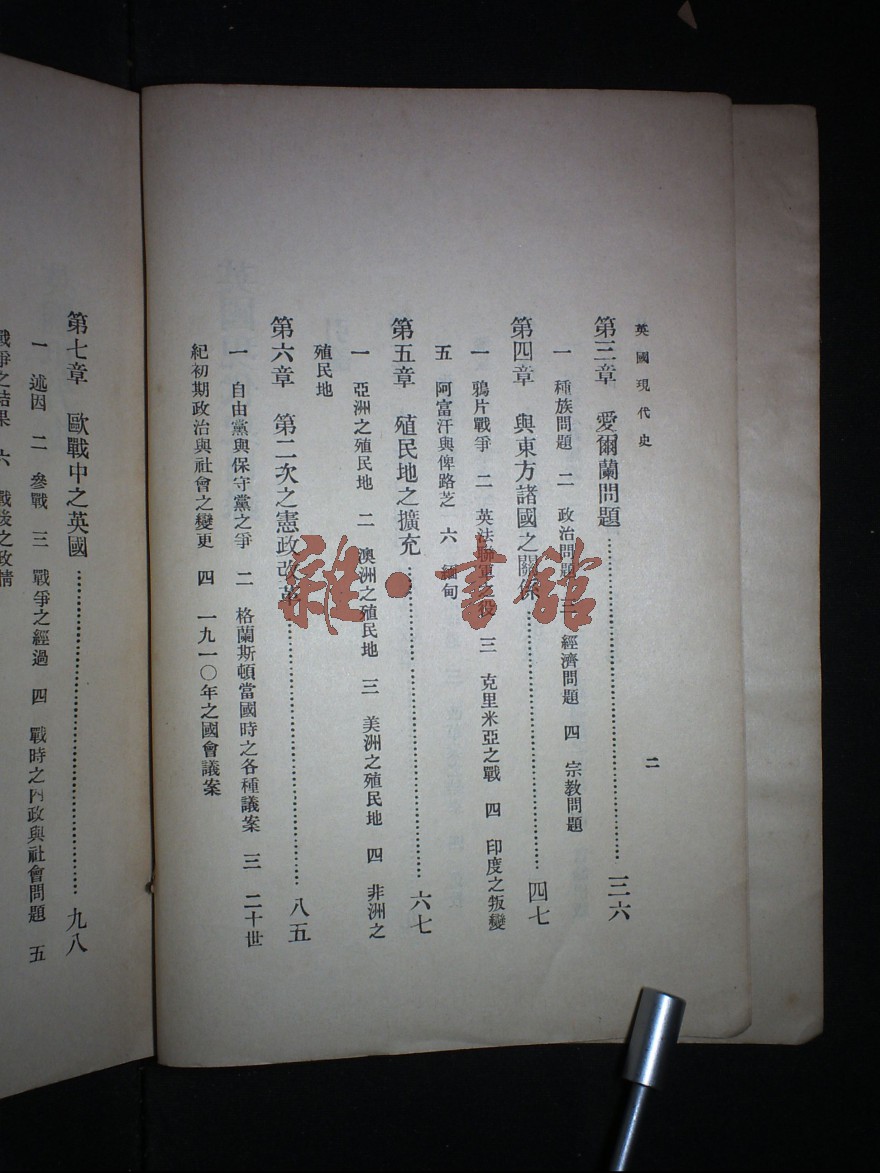 英國現代史
二
第三章 愛爾蘭問題……三六
一 種族問題 二 政治問題 三 經濟問題 四 宗教問題
第四章 與東方諸國之關係……四七
一 鴉片戰爭 二 英法聯軍之役 三 克里米亞之戰 四 印度之叛變
五 阿富汗與俾路芝 六 緬甸
第五章 殖民地之擴充……六七
一 亞洲之殖民地 二 澳洲之殖民地 三 美洲之殖民地 四 非洲之
殖民地
第六章 第二次之憲政改革……八五
一 自由黨與保守黨之爭 二 格蘭斯頓當國時之各種議案 三 二十世
紀初期政治與社會之變更 四 一九一〇年之國會議案
第七章 歐戰中之英國……九八
一 述因 二 參戰 三 戰爭之經過 四 戰時之內政與社會問題 五
戰爭之結果 六 戰後之政情
雜·書館